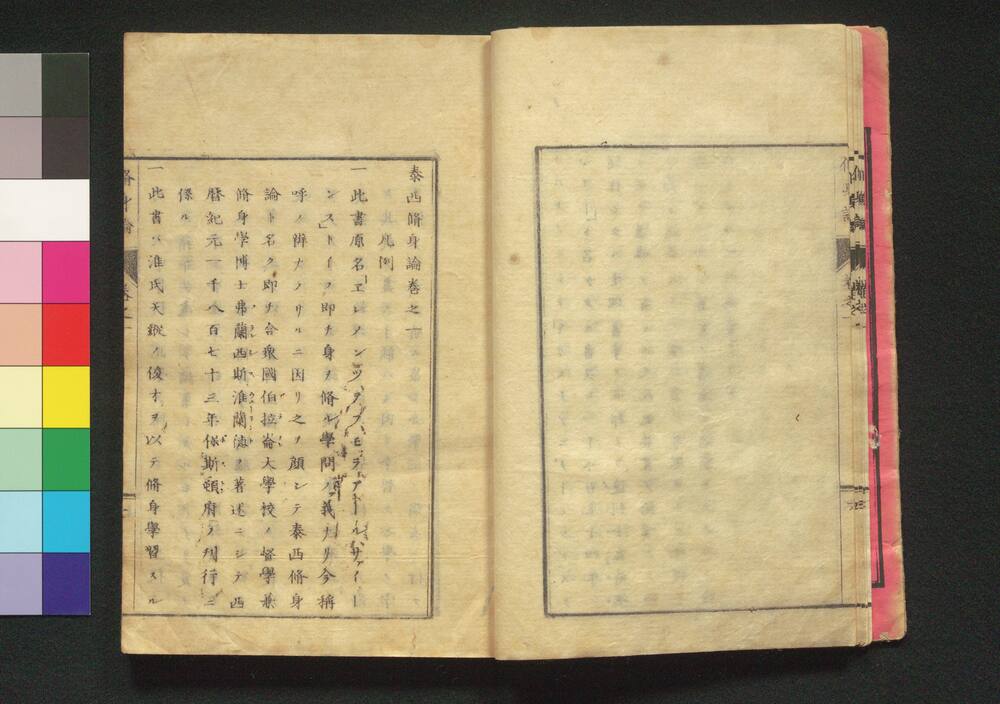 泰西脩身論卷之一
凡例
一此書原名エレメンツヲフモラアールサイー
ンストイフ即チ身ヲ脩ル學問ノ義ナリ今稱
呼ノ辨ナラサルニ因リ之ヲ顏シテ泰西脩身
論ト名ク即チ合衆國伯拉崙大學校ノ督學兼
脩身學博士弗蘭西斯淮蘭德ノ著述ニシテ西
曆紀元一千八百七十三年保斯頓府ノ刊行ニ
係ル
一此書ハ淮氏天縱ノ俊才ヲ以テ脩身學習スル
脩身論
卷之一